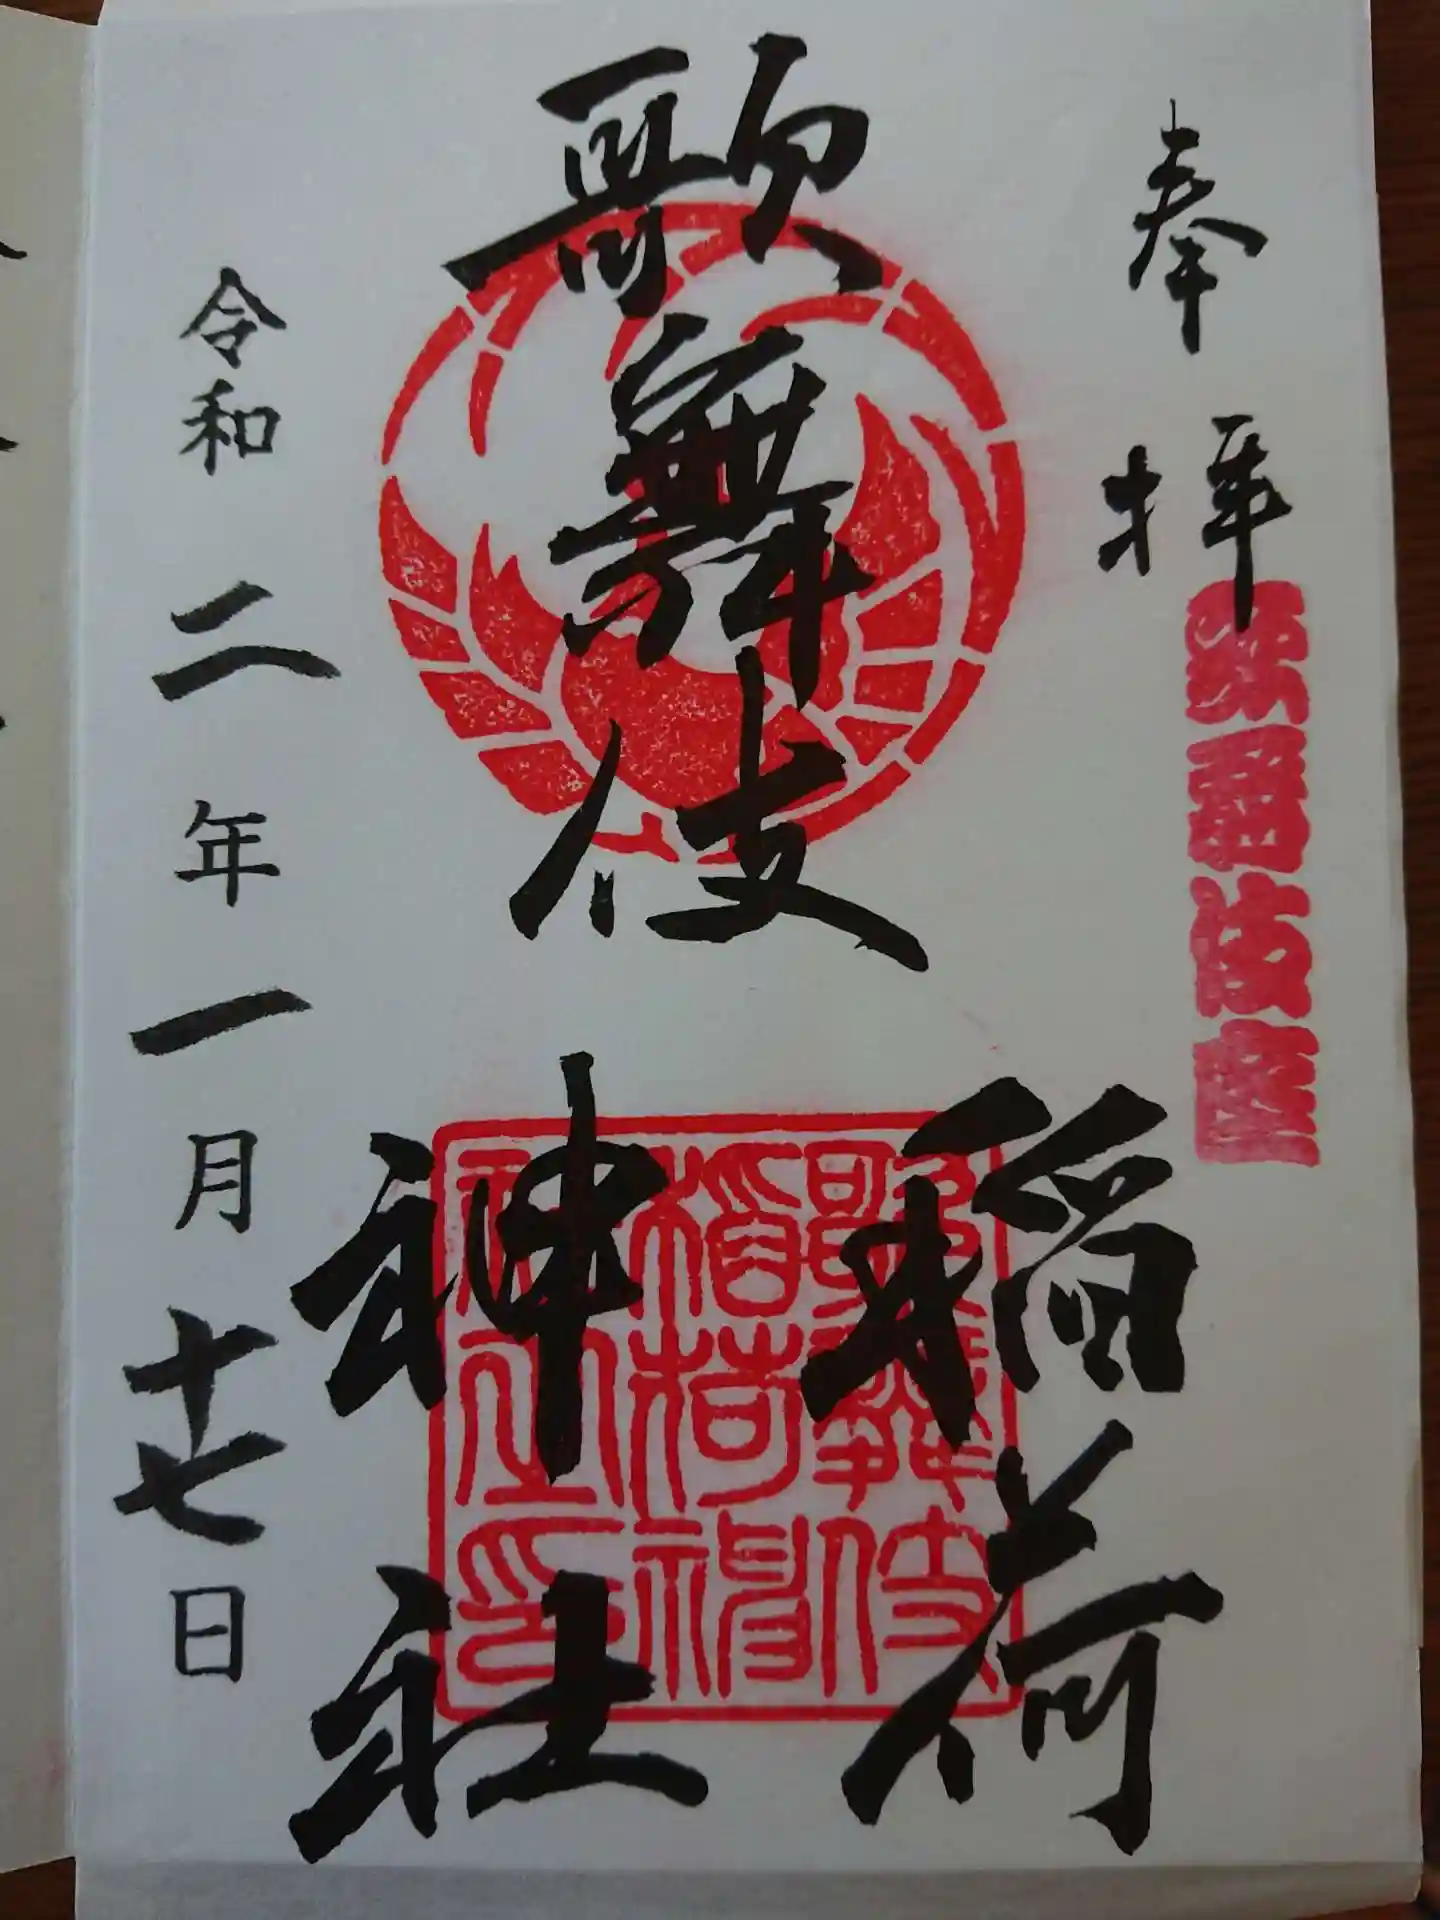 奉拝
歌舞伎座
歌舞伎
稲荷
神社
歌舞伎
稲荷神
社之印
令和二年一月十七日